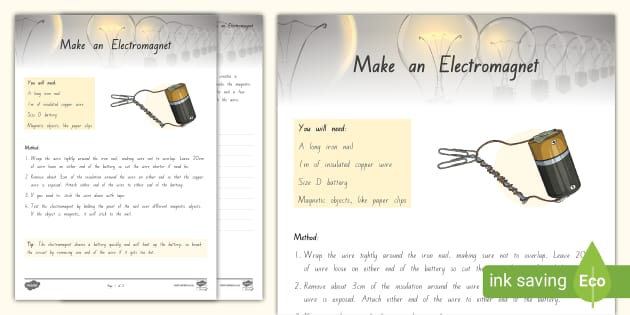 Make an Electromagnet
You will need:
A long iron nail
1m of insulated copper wire
Size D battery
Magnetic objects, like paper clips
Method:
1. Wrap the wire tightly around the iron nail, making sure not to overlap. Leave 20cm
of wire loose on either end of the battery so cut the wire shorter if need be.
2. Remove about 3cm of the insulation around the wire on either end so that the copper
wire is exposed. Attach either end of the wire to either end of the battery.
3. If you need to, stick the wire down with tape.
4. Test the electromagnet by holding the point of the nail over different magnetic objects.
If the object is magnetic, it will stick to the nail.
Tip: The electromagnet drains a battery quickly and will heat up the battery, so break
the circuit by removing one end of the wire if it gets too hot.
twinkl
Page 1 of 2
an Electromagnet
Make an Electromagnet
You will need:
A long iron nail
1m of insulated copper wire
Size D battery
Magnetic objects, like paper clips
Method:
1. Wrap the wire tightly around the iron nail, making sure not to overlap. Leave 20
of wire loose on either end of the battery so cut the
2. Remove about 3cm of the insulation around the wire
wire is exposed. Attach either end of the wire to either end of the battery.
ink saving
Eco